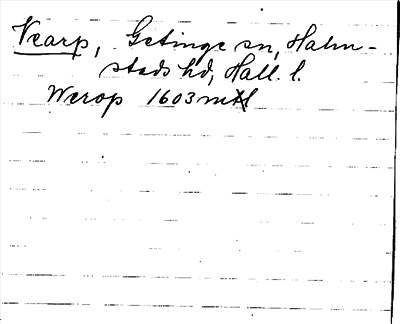 Vearp, Getinge sn, Halm-
stads hd, Hall. l.
Werop 1603 mtl